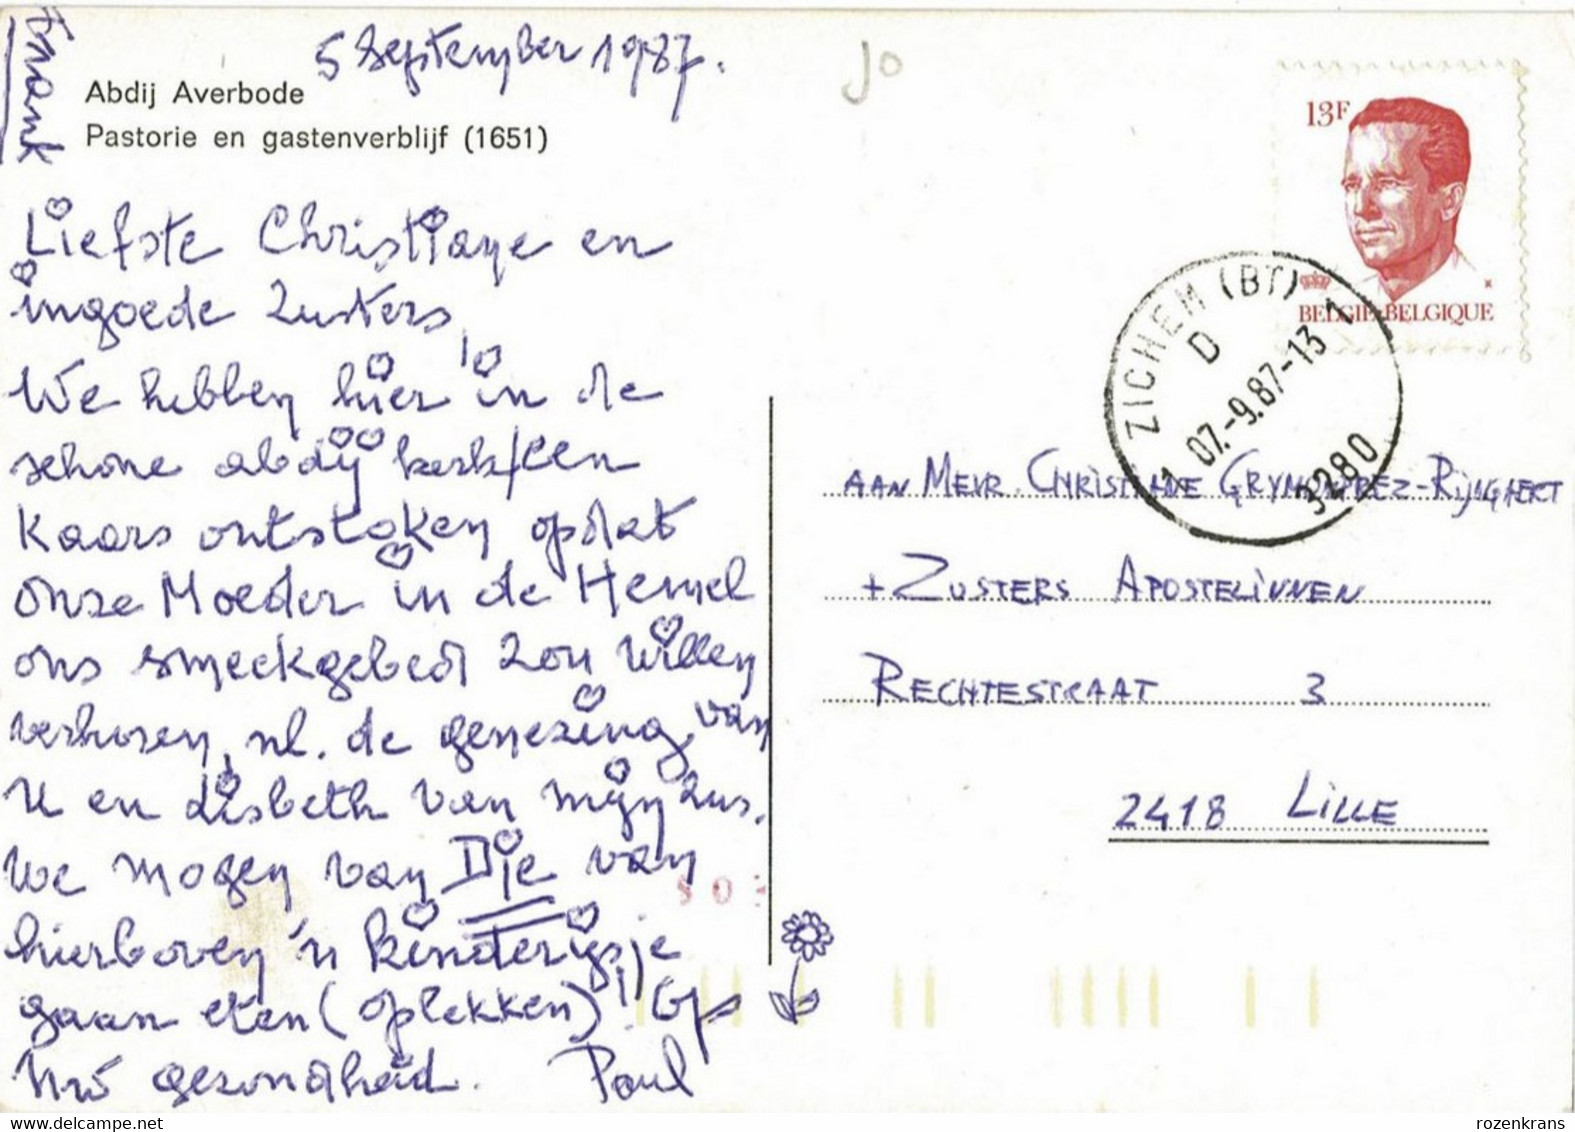 Frank
5 September 1987.
Jo
Abdij Averbode
Pastorie en gastenverblijf (1651)
Liefste Christiane en
ingoede zusters
We hebben hier in de
schone abdijkerk een
Kaars ontstoken opdat
onze Moeder in de Hemel
ons smeekgebed zou willen
verhoren, nl. de genezing van
U en Lisbeth van mijn zus.
We mogen van Die van
hierboven 'n kinderijsje
gaan eten (oplekken)! Op
Uw gezondheid. Paul
13F
BELGIE-BELGIQUE
ZICHEM (BT)
D
1 07.-9.87-13 1
3280
AAN MEVR. CHRISTIANE
+ ZUSTERS APOSTELINNEN
RECHTESTRAAT 3
2418 LILLE
rozenkrans